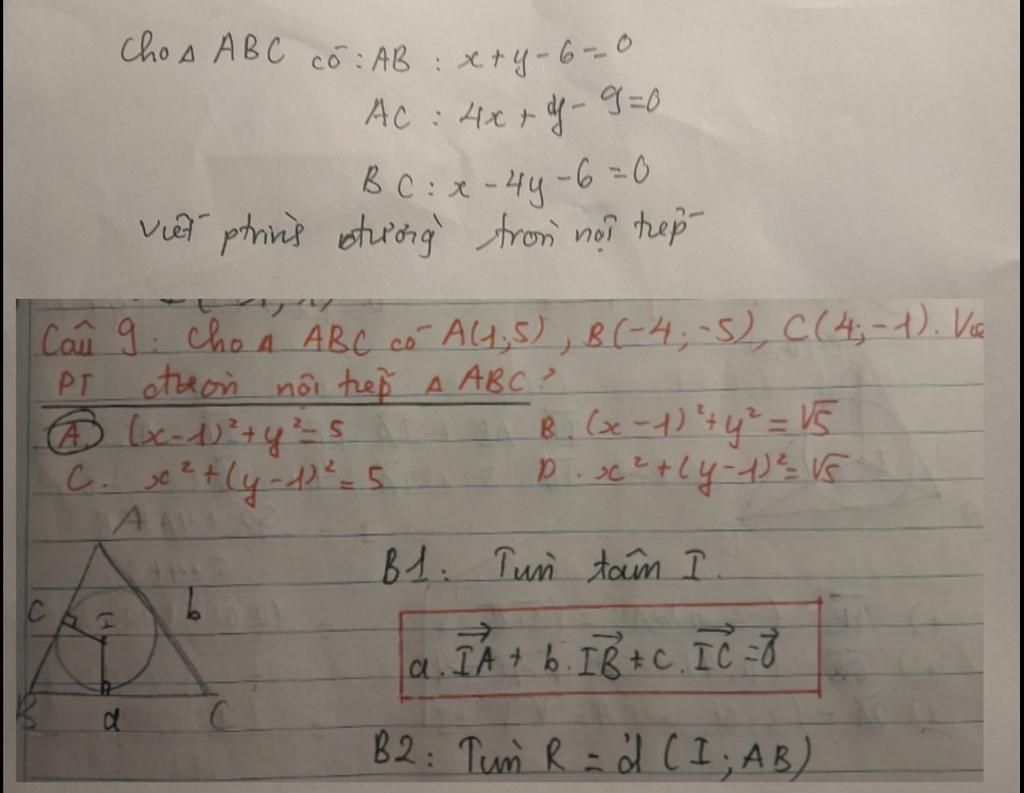 Cho Δ ABC có : AB : x + y - 6 = 0
AC : 4x + y - 9 = 0
BC : x - 4y - 6 = 0
Viết ptrình đường tròn nội tiếp
Câu 9 : Cho Δ ABC có A(1;5), B(-4;-5), C(4;-1).
PT đtròn nội tiếp Δ ABC?
A. (x-1)²+y²=5 B. (x-1)²+y²=√5
C. x²+(y-1)²=5 D. x²+(y-1)²=√5
A
B1: Tìm tâm I.
c I b
a.IA⃗ + b.IB⃗ + c.IC⃗ = 0⃗
B a C
B2: Tìm R = d (I; AB)